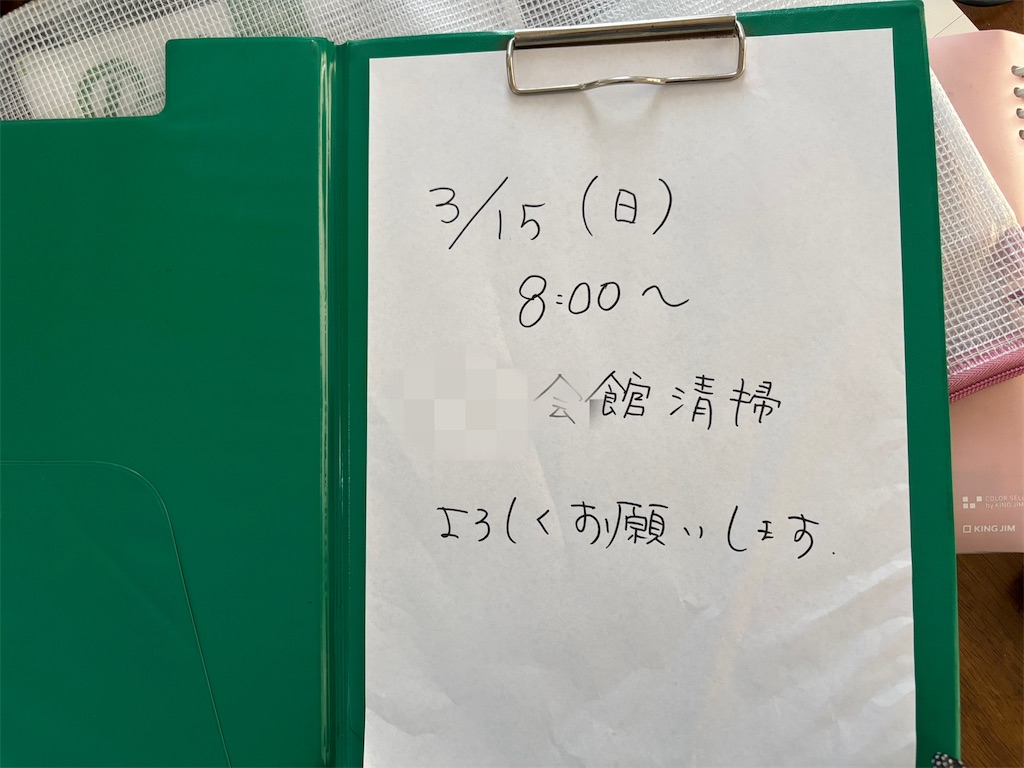 3/15（日）
8:00～
会館清掃
よろしくお願いします.
COLOR SELE
by KING JIM
KING JIM